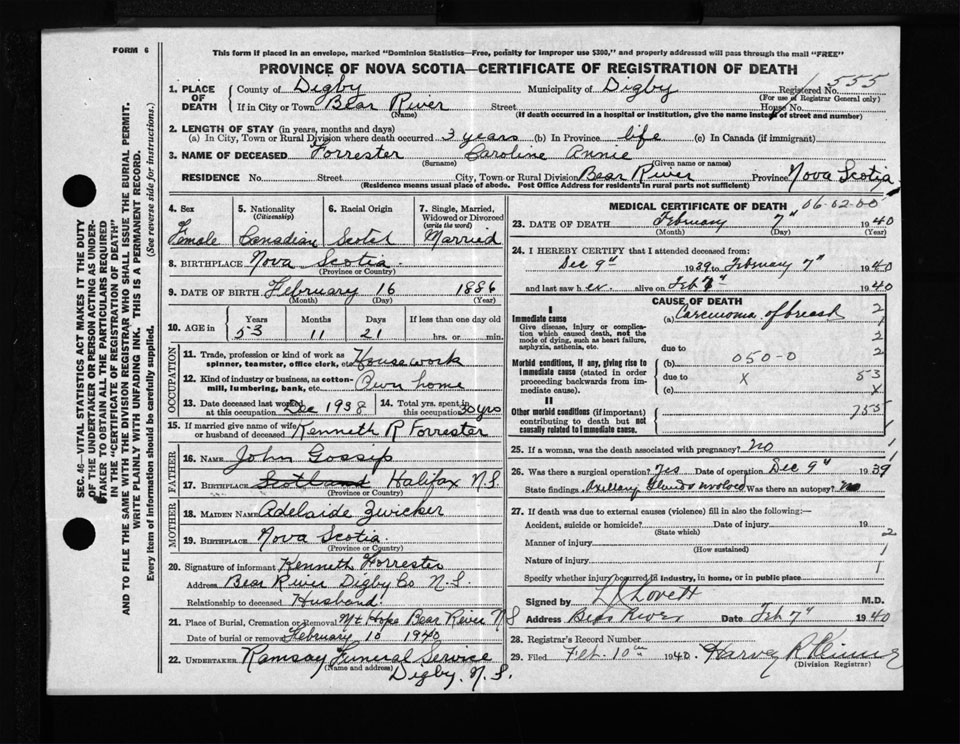 FORM 6
This form if placed in an envelope, marked "Dominion Statistics—Free, penalty for improper use $300," and properly addressed will pass through the mail "FREE"
PROVINCE OF NOVA SCOTIA—CERTIFICATE OF REGISTRATION OF DEATH
SEC. 46—VITAL STATISTICS ACT MAKES IT THE DUTY
OF THE UNDERTAKER OR PERSON ACTING AS UNDER-
TAKER TO OBTAIN ALL THE PARTICULARS REQUIRED
IN THE "CERTIFICATE OF REGISTRATION OF DEATH"
AND TO FILE THE SAME WITH THE DIVISION REGISTRAR WHO SHALL ISSUE THE BURIAL PERMIT.
WRITE PLAINLY WITH UNFADING INK. THIS IS A PERMANENT RECORD.
Every item of information should be carefully supplied. (See reverse side for instructions.)
1. PLACE OF DEATH County of Digby Municipality of Digby Registered No. 555
(For use of Registrar General only)
If in City or Town Bear River Street House No.
(Name) (If death occurred in a hospital or institution, give the name instead of street and number)
2. LENGTH OF STAY (in years, months and days)
(a) In City, Town or Rural Division where death occurred 3 years (b) In Province life (c) In Canada (if immigrant)
3. NAME OF DECEASED Forrester Caroline Annie
(Surname) (Given name or names)
RESIDENCE No. Street City, Town or Rural Division Bear River Province Nova Scotia
(Residence means usual place of abode. Post Office Address for residents in rural parts not sufficient)
4. Sex 5. Nationality (Citizenship) 6. Racial Origin 7. Single, Married, Widowed or Divorced (write the word)
Female Canadian Scotch Married
8. BIRTHPLACE Nova Scotia
(Province or Country)
9. DATE OF BIRTH February 16 1886
(Month) (Day) (Year)
10. AGE in Years Months Days If less than one day old
53 11 21 hrs. or min.
OCCUPATION
11. Trade, profession or kind of work as spinner, teamster, office clerk, etc. Housework
12. Kind of industry or business, as cotton-mill, lumbering, bank, etc. Own home
13. Date deceased last worked at this occupation Dec 1938 14. Total yrs. spent in this occupation 30 yrs
15. If married give name of wife or husband of deceased Kenneth R Forrester
FATHER
16. NAME John Gossip
17. BIRTHPLACE Scotland Halifax N.S.
(Province or Country)
MOTHER
18. MAIDEN NAME Adelaide Zwicker
19. BIRTHPLACE Nova Scotia
(Province or Country)
20. Signature of informant Kenneth Forrester
Address Bear River Digby Co N.S.
Relationship to deceased Husband
21. Place of Burial, Cremation or Removal Mt Hope Bear River N S
Date of burial or removal February 10 1940
22. UNDERTAKER Ramsay Funeral Service
(Name and address) Digby, N.S.
MEDICAL CERTIFICATE OF DEATH 06-02-00
23. DATE OF DEATH February 7" 1940
(Month) (Day) (Year)
24. I HEREBY CERTIFY that I attended deceased from:
Dec 9" 1939 to February 7" 1940
and last saw her alive on Feb 7" 1940
CAUSE OF DEATH
I
Immediate cause (a) Carcinoma of breast 2
Give disease, injury or complication which caused death, not the mode of dying, such as heart failure, asphyxia, asthenia, etc.
due to
Morbid conditions, if any, giving rise to immediate cause (stated in order proceeding backwards from immediate cause).
(b) 050-0
due to X 53
(c) X
II
Other morbid conditions (if important) contributing to death but not causally related to immediate cause. 755
25. If a woman, was the death associated with pregnancy? no
26. Was there a surgical operation? Yes Date of operation Dec 9" 1939
State findings Axillary Glands involved Was there an autopsy? No
27. If death was due to external causes (violence) fill in also the following:—
Accident, suicide or homicide? Date of injury 19
(State which)
Manner of injury 2
(How sustained)
Nature of injury 1
Specify whether injury occurred in industry, in home, or in public place
Signed by Lovett M.D.
Address Bear River Date Feb 7" 1940
28. Registrar's Record Number
29. Filed Feb. 10th 1940. Harvey R
(Division Registrar)